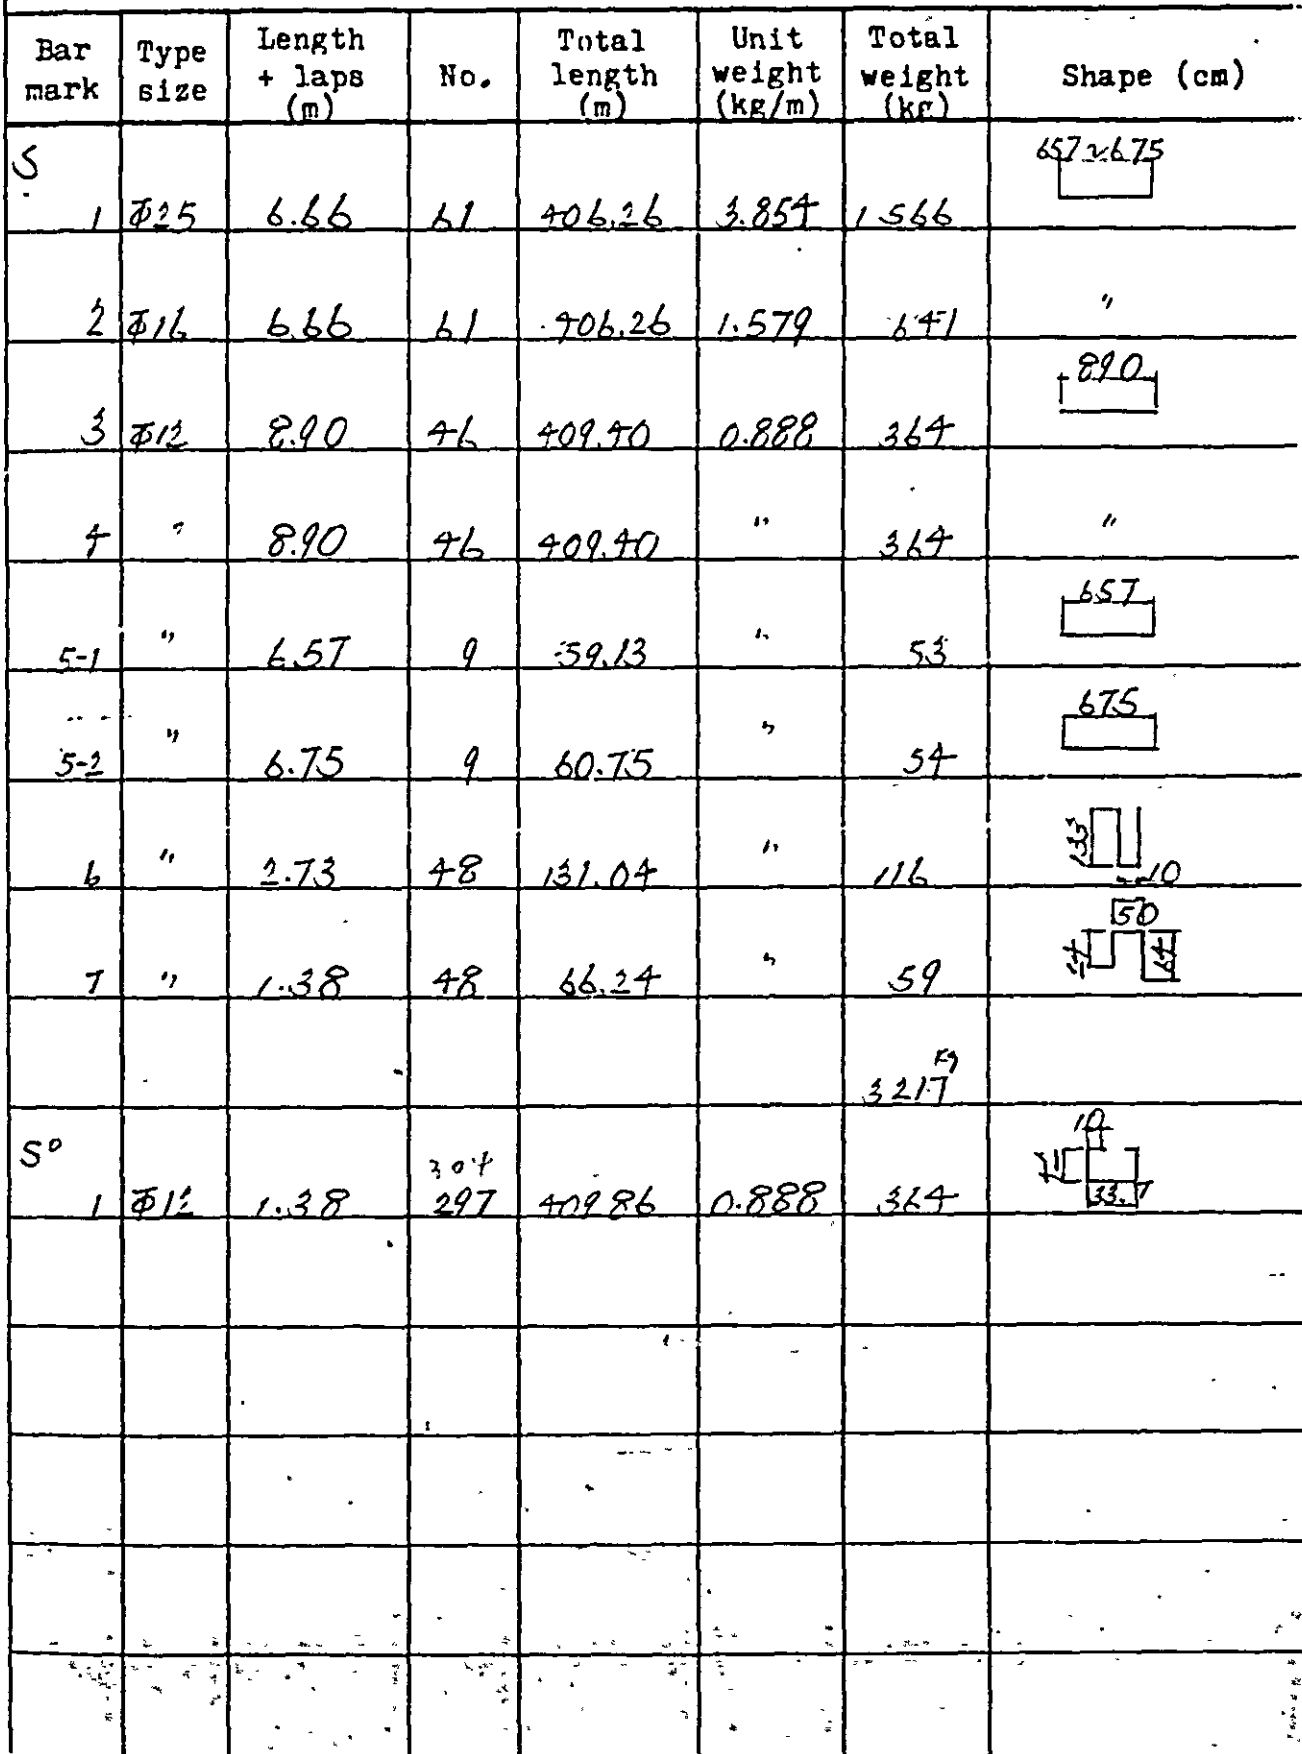 Bar mark | Type size | Length + laps (m) | No. | Total length (m) | Unit weight (kg/m) | Total weight (kg) | Shape (cm)
S
1 | Φ25 | 6.66 | 61 | 406.26 | 3.854 | 1566 | 657~675
2 | Φ16 | 6.66 | 61 | 406.26 | 1.579 | 641 | "
3 | Φ12 | 8.90 | 46 | 409.40 | 0.888 | 364 | 890
4 | " | 8.90 | 46 | 409.40 | " | 364 | "
5-1 | " | 6.57 | 9 | 59.13 | " | 53 | 657
5-2 | " | 6.75 | 9 | 60.75 | " | 54 | 675
6 | " | 2.73 | 48 | 131.04 | " | 116 | 133 10
7 | " | 1.38 | 48 | 66.24 | " | 59 | 50 64
3217 kg
S°
1 | Φ12 | 1.38 | 304 297 | 409.86 | 0.888 | 364 | 10 33.7